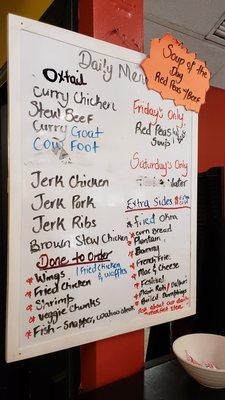 Daily Menu
Oxtail
Curry Chicken
Stew Beef
Curry Goat
Cow Foot
Jerk Chicken
Jerk Pork
Jerk Ribs
Brown Stew Chicken
Done to Order
Wings
Fried Chicken
Shrimp
Veggie Chunks
Fish - Snapper,
Fried Chicken
& waffles
Soup of the
Day
Red Peas w/ Beef
Friday's Only
Red Peas
Soup
Saturday's Only
Water
Extra Sides
Fried Okra
Corn Bread
Plantain
Bammy
French Fries
Mac & Cheese
Festival
Boiled Dumplings
Ask about our daily
breakfast